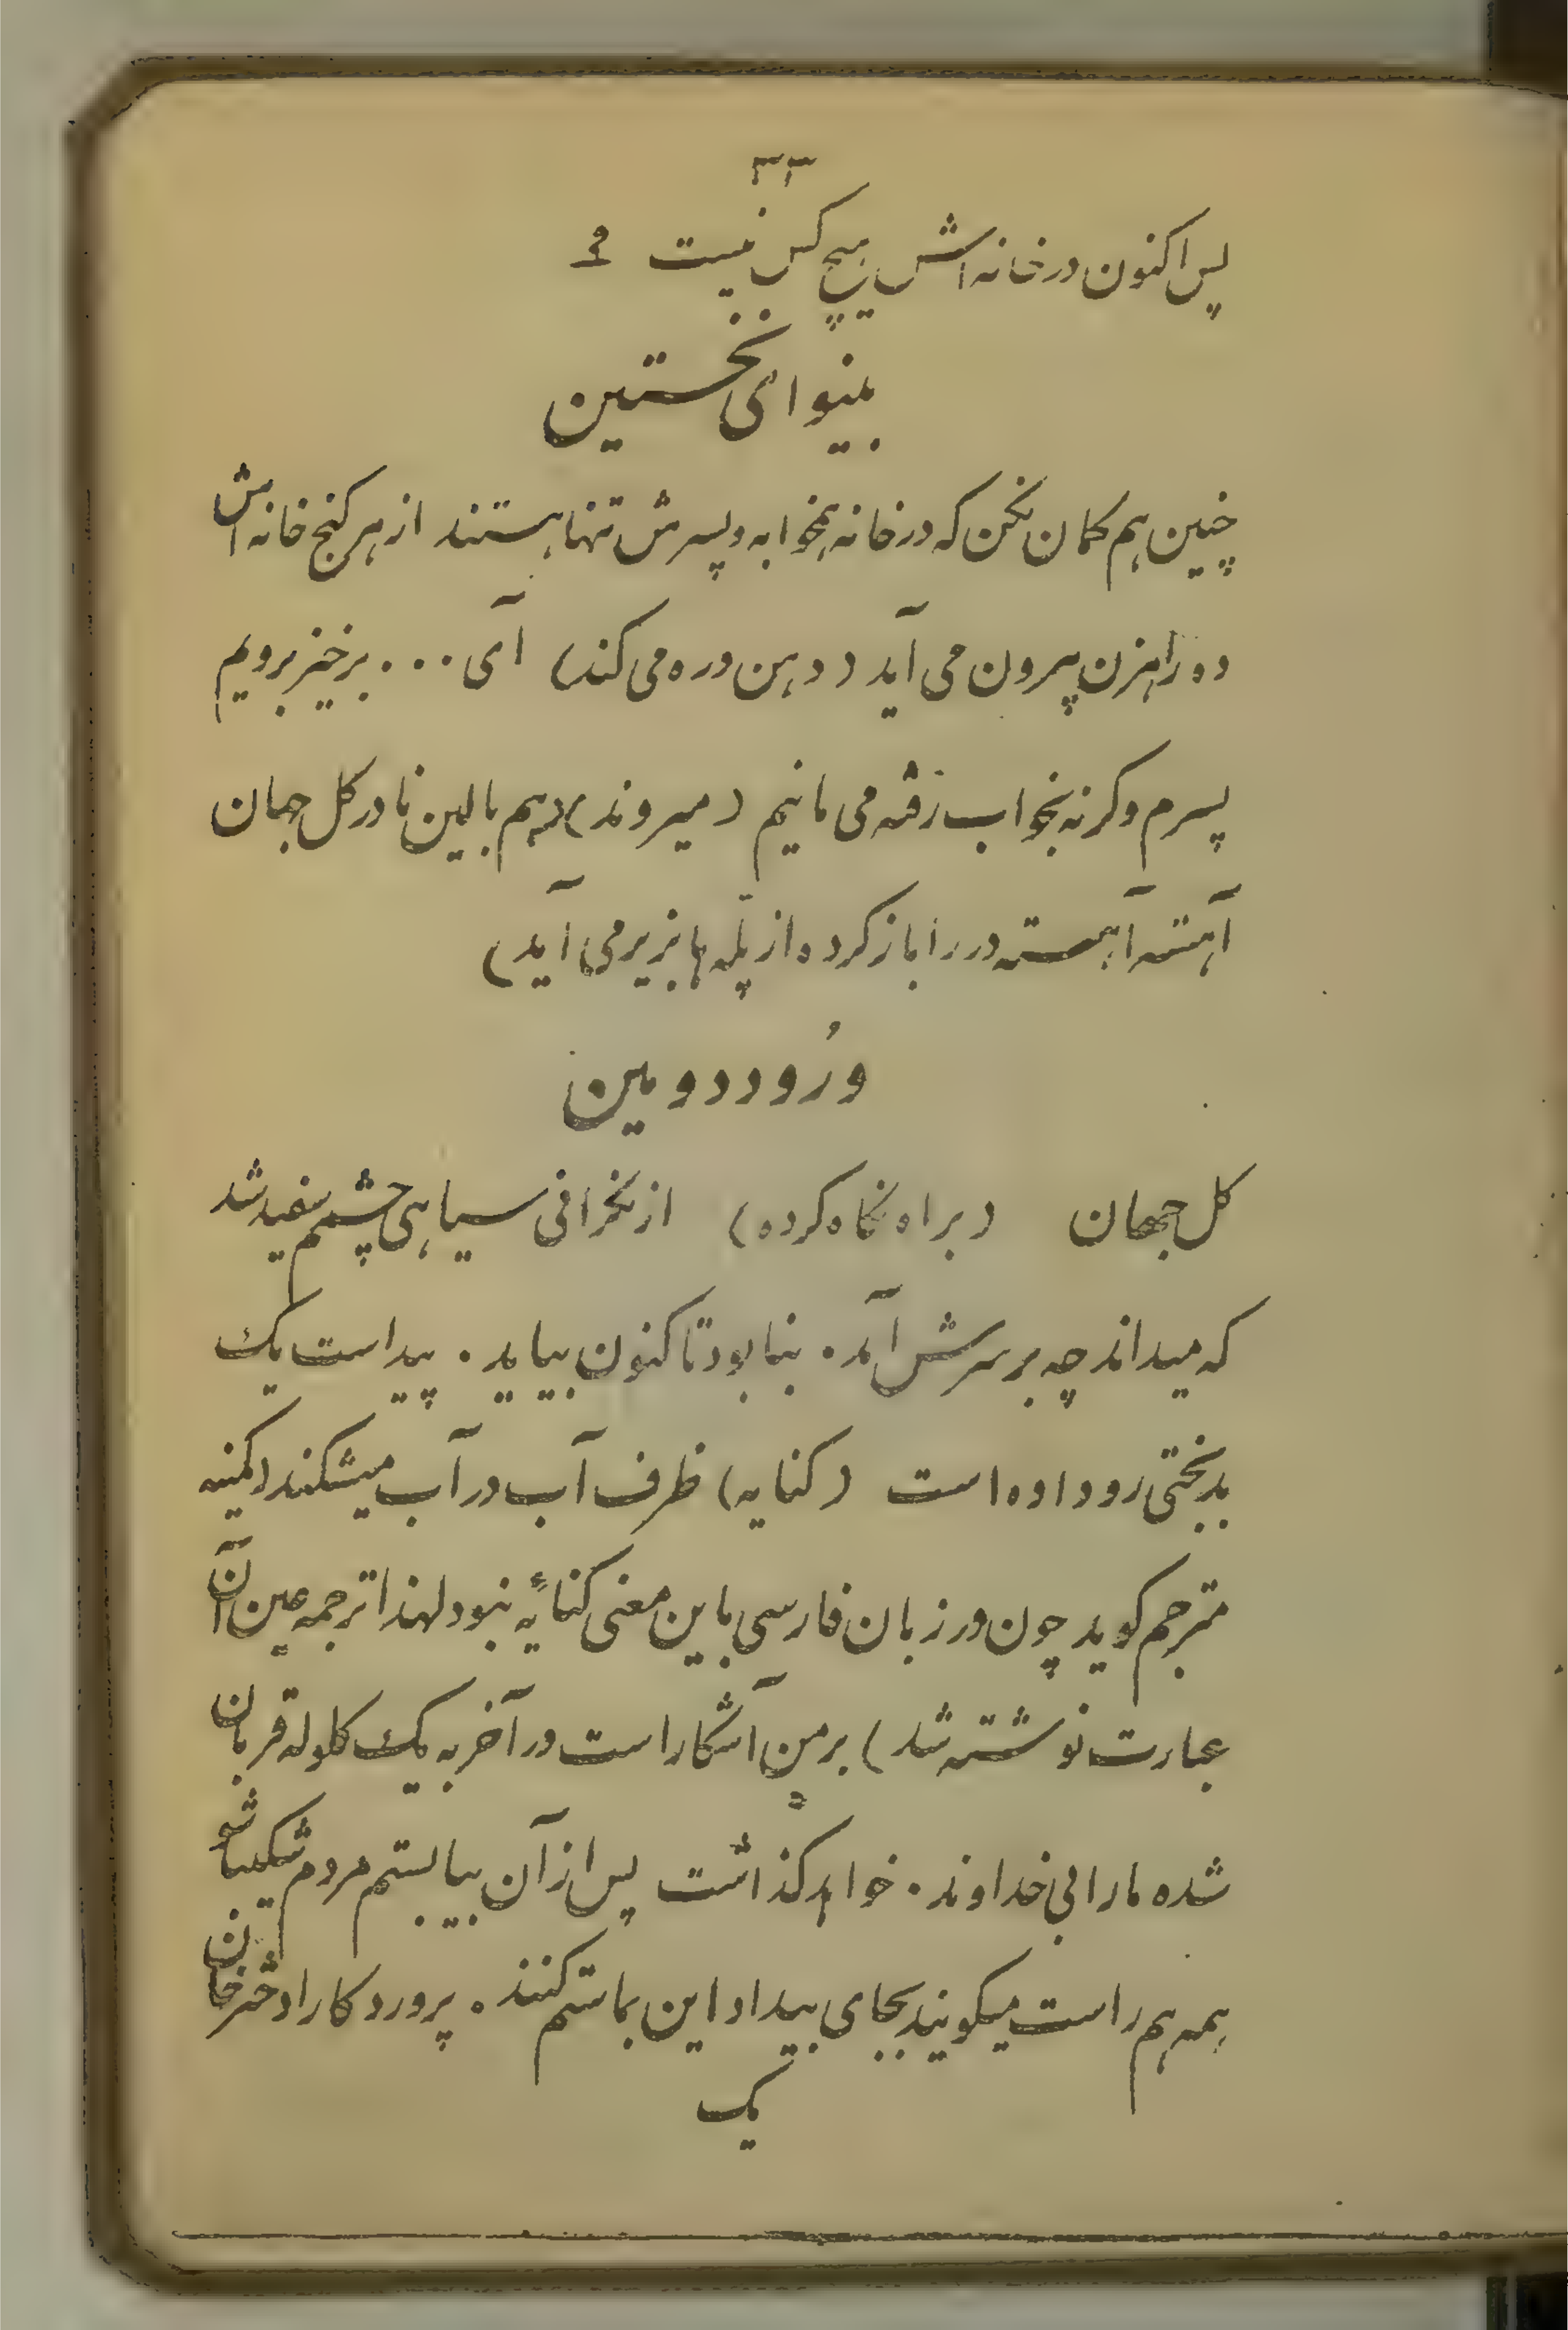 ۳۳
پس اکنون در خانه اش هیچ کس نیست ؟
بینوای نخستین
چنین هم کمان نکن که در خانه همخوابه و پسرش تنها هستند از هر کنج خانه اش
ده راهزن پیرون می آید (دهن دره می کند) آی ... برخیز برویم
پسرم وکرنه بخواب رفته می مانیم (میروند) (هم بالین نادر کل جهان
آهسته آهسته در را باز کرده از پله ها بزیر می آید)
وُرُود دومین
کل جهان (براه نکاه کرده) از نکرانی سیاهی چشمم سفید شد
که میداند چه بر سرش آمد. بنا بود تاکنون بیاید. پیداست یک
بدبختی رو داده است (کنایه) ظرف آب در آب میشکند (کمینه
مترجم کوید چون در زبان فارسی باین معنی کنایهٔ نبود لهذا ترجمه عین آن
عبارت نوشته شد) بر من آشکار است در آخر به یک کلوله قربان
شده مارا بی خداوند. خواهد کذاشت پس از آن بیا بستم مردم شکیبا شو
همه هم راست میکویند بجای بیداد این بما ستم کنند. پروردکارا دختر خان
یک